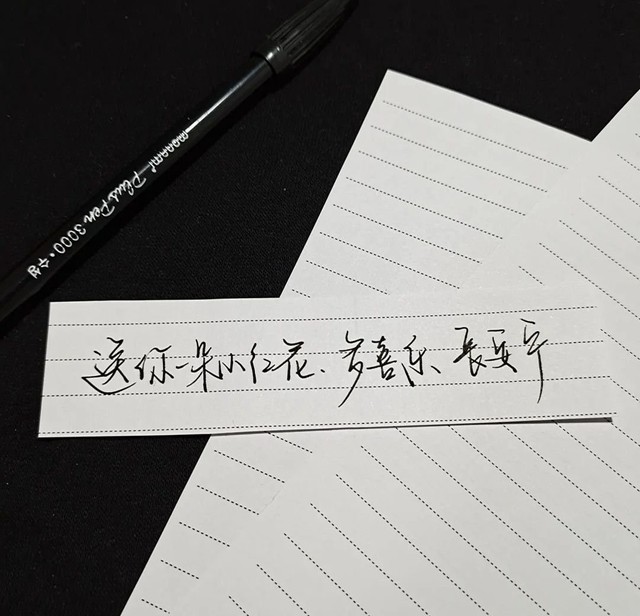 monami Plus Pen 3000
送你一朵小红花、多喜乐、长安宁